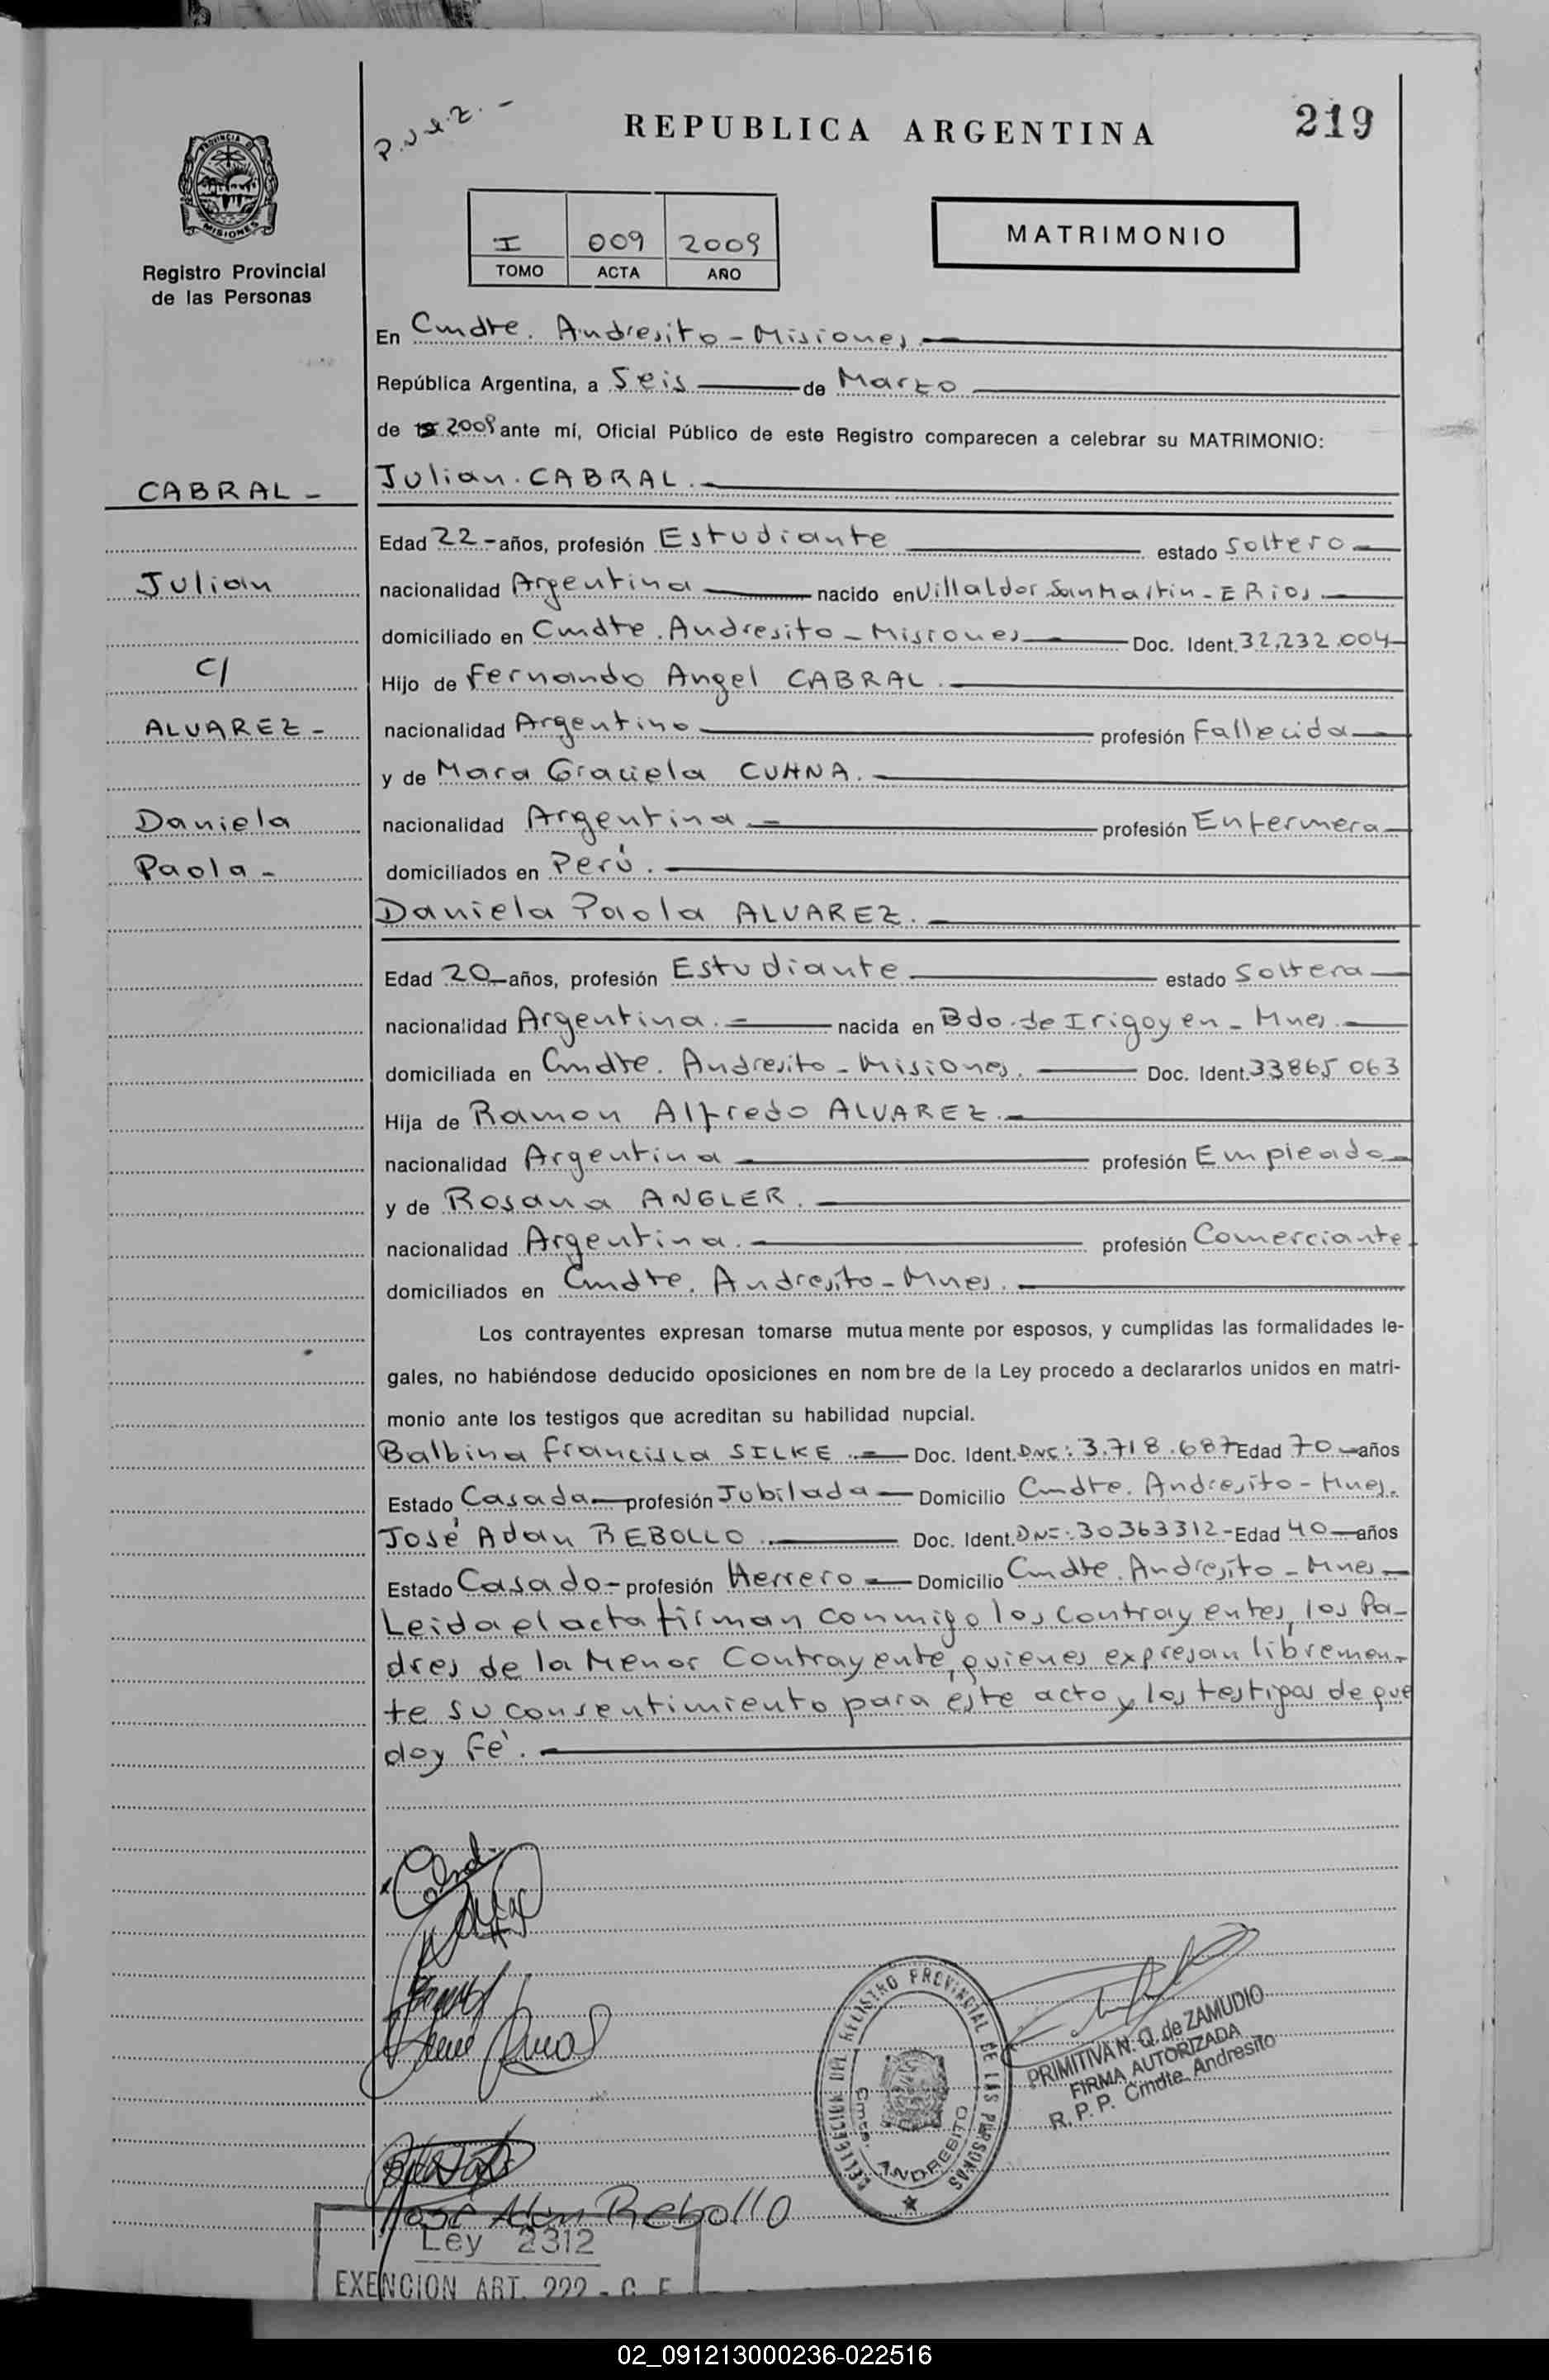 P.U.4.2.-
REPUBLICA ARGENTINA
219
PROVINCIA DE
MISIONES
Registro Provincial
de las Personas
I 009 2009
TOMO ACTA AÑO
MATRIMONIO
En Cmdte. Andresito - Misiones
República Argentina, a Seis de Marzo
de 2009 ante mí, Oficial Público de este Registro comparecen a celebrar su MATRIMONIO:
CABRAL -
Julian. CABRAL.
Edad 22 - años, profesión Estudiante estado Soltero
Julian
nacionalidad Argentina nacido en Villaldor San Martin - E Rios
domiciliado en Cmdte. Andresito - Misiones Doc. Ident. 32.232.004
C/
Hijo de Fernando Angel CABRAL.
ALVAREZ -
nacionalidad Argentino profesión Fallecida
y de Mara Graciela CUHNA.
Daniela
nacionalidad Argentina. profesión Enfermera
Paola -
domiciliados en Perú.
Daniela Paola ALVAREZ.
Edad 20 años, profesión Estudiante estado Soltera
nacionalidad Argentina. nacida en Bdo. de Irigoyen - Mnes.
domiciliada en Cmdte. Andresito - Misiones. Doc. Ident. 33865 063
Hija de Ramon Alfredo ALVAREZ.
nacionalidad Argentina profesión Empleado
y de Rosana ANGLER.
nacionalidad Argentina. profesión Comerciante
domiciliados en Cmdte. Andresito - Mnes.
Los contrayentes expresan tomarse mutua mente por esposos, y cumplidas las formalidades le-
gales, no habiéndose deducido oposiciones en nom bre de la Ley procedo a declararlos unidos en matri-
monio ante los testigos que acreditan su habilidad nupcial.
Balbina Francisca SILKE. Doc. Ident. DNI: 3.718.687 Edad 70 años
Estado Casada profesión Jubilada Domicilio Cmdte. Andresito - Mnes.
José Adan REBOLLO. Doc. Ident. DNI: 30363312 - Edad 40 años
Estado Casado - profesión Herrero Domicilio Cmdte. Andresito - Mnes
Leida el acta firman conmigo los contrayentes, los Pa-
dres de la Menor Contrayente, quienes expresan libremen-
te su consentimiento para este acto y los testigos de que
doy Fé.
DELEGACION DEL REGISTRO PROVINCIAL DE LAS PERSONAS
Cmdte. ANDRESITO
PRIMITIVA N. Q. de ZAMUDIO
FIRMA AUTORIZADA
R. P. P. Cmdte. Andresito
José Adan Rebollo
Ley 2312
EXENCION ART. 222 - C. F.
02_091213000236-022516